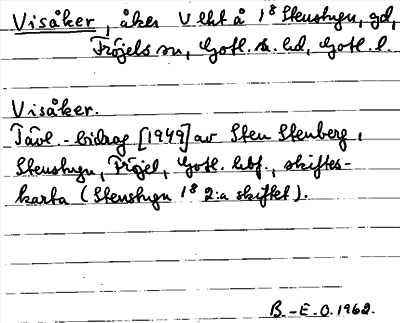 Visåker, åker V lht å 1⁸ Stenstugu, gd,
Fröjels sn, Gotl. s. hd, Gotl. l.
Visåker.
Tävl.-bidrag [1949] av Sten Stenberg,
Stenstugu, Fröjel, Gotl. hbf., skiftes-
karta (Stenstugu 1⁸ 2:a skiftet).
B.-E.O. 1962.